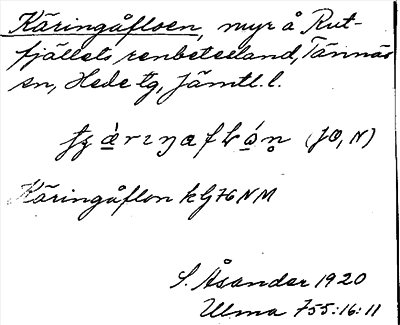 Käringåfloen, myr å Rut-
fjällets renbetesland, Tännäs
sn, Hede tg, Jämtl. l.
(JO, N)
Käringåflon kG76NM
S. Åsander 1920
Ulma 755:16:11